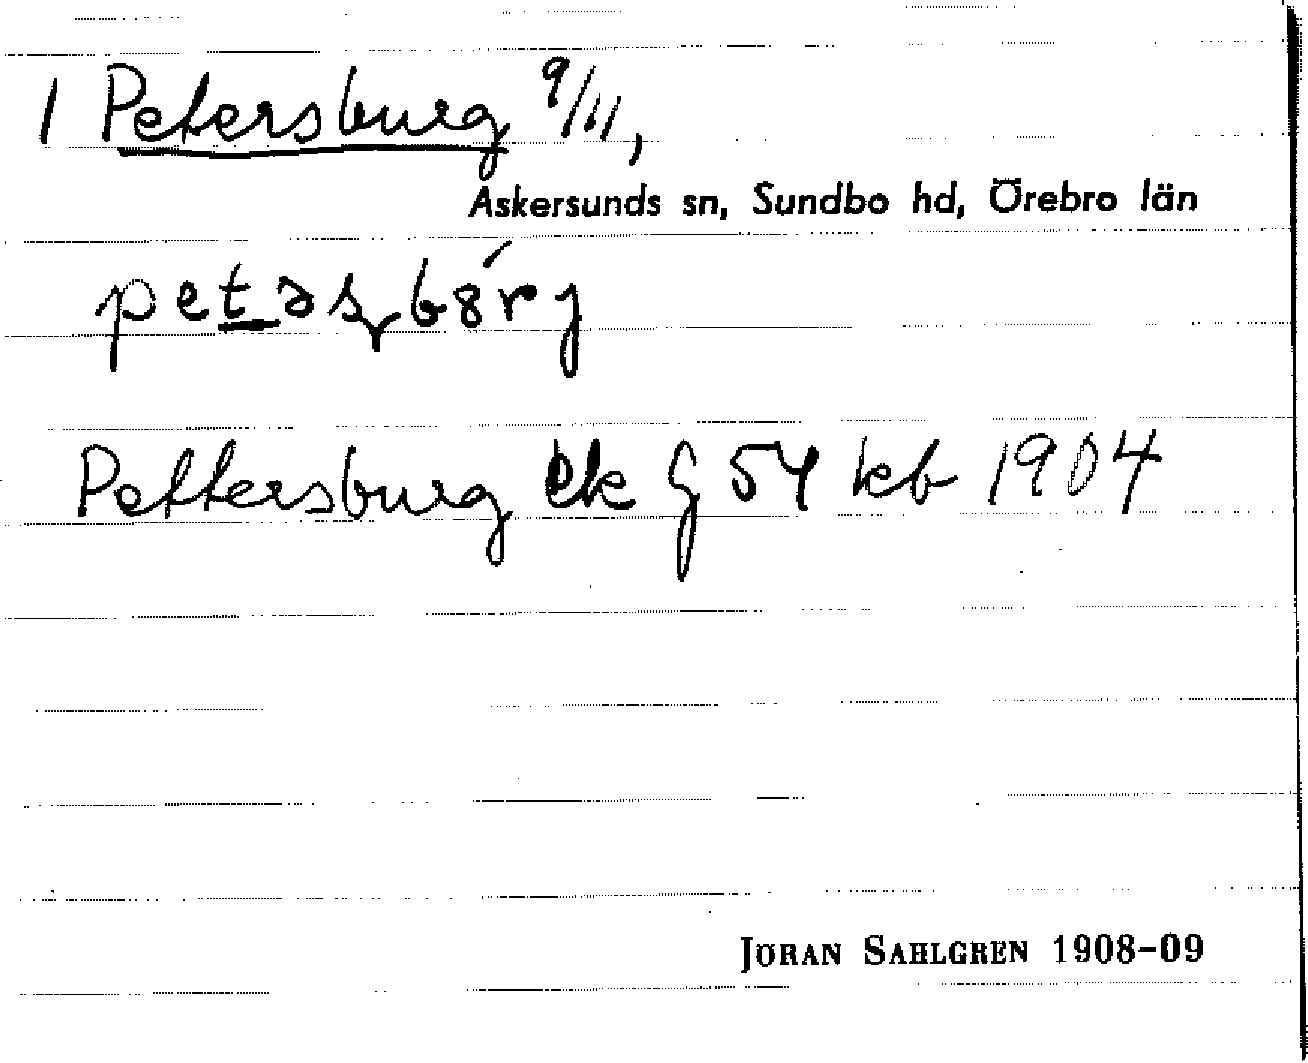 1 Petersburg 9/11,
Askersunds sn, Sundbo hd, Örebro län
petəsbȣ́rj
Pettersburg ek G 54 kb 1904
JÖRAN SAHLGREN 1908–09